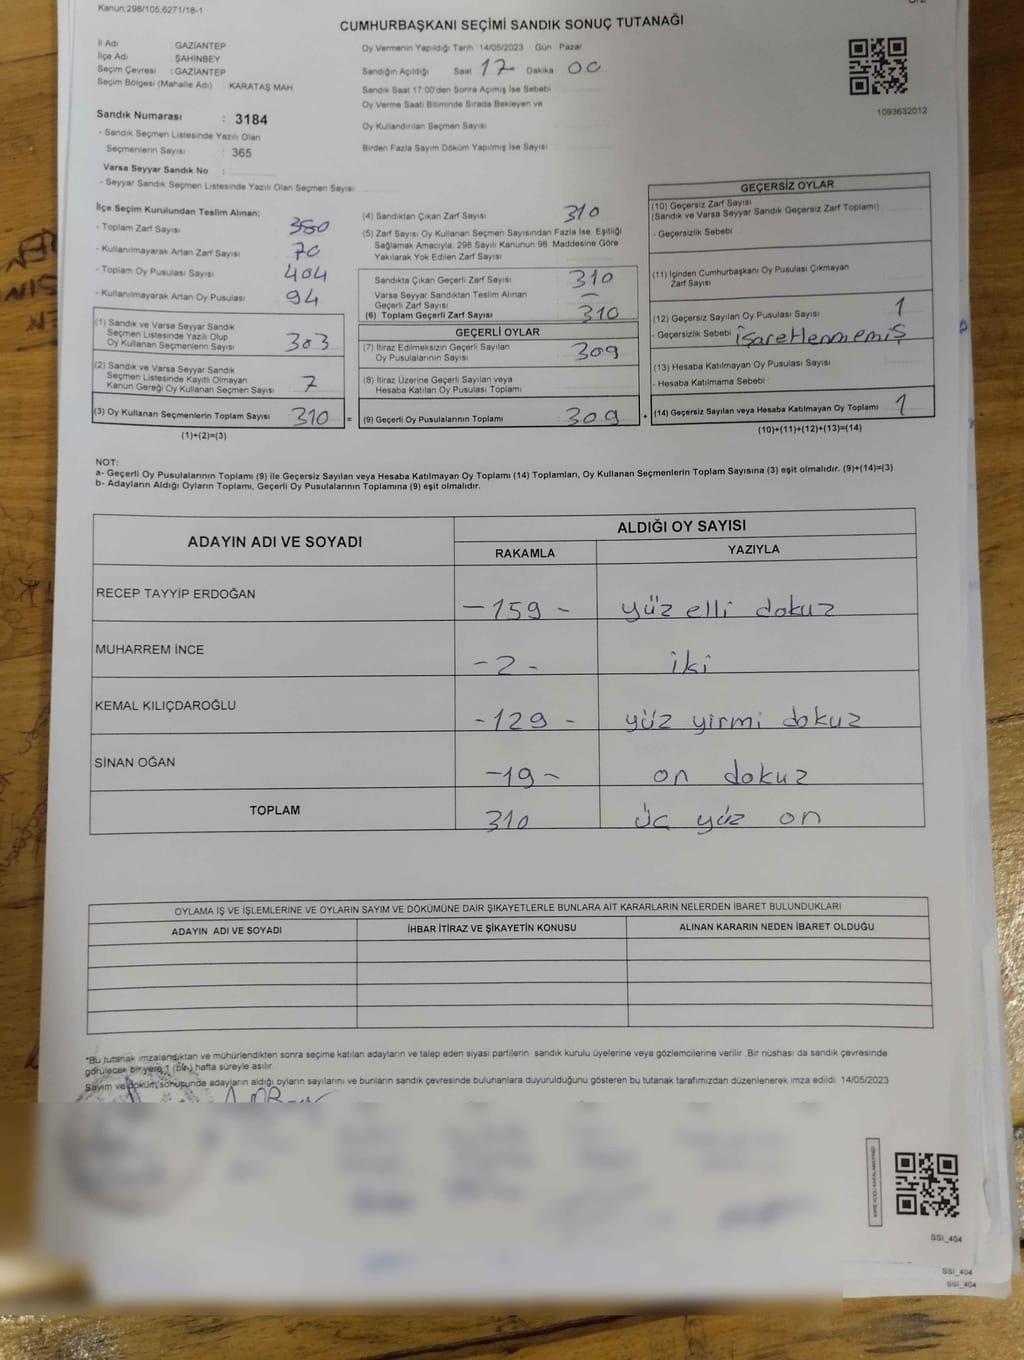 Kanun:298/105,6271/18-1
CUMHURBAŞKANI SEÇİMİ SANDIK SONUÇ TUTANAĞI
İl Adı : GAZİANTEP
İlçe Adı : ŞAHİNBEY
Seçim Çevresi : GAZİANTEP
Seçim Bölgesi (Mahalle Adı) : KARATAŞ MAH
Sandık Numarası : 3184
- Sandık Seçmen Listesinde Yazılı Olan
Seçmenlerin Sayısı : 365
Varsa Seyyar Sandık No :
- Seyyar Sandık Seçmen Listesinde Yazılı Olan Seçmen Sayısı
Oy Vermenin Yapıldığı Tarih 14/05/2023 Gün Pazar
Sandığın Açıldığı Saat 17 Dakika 00
Sandık Saat 17:00'den Sonra Açımış İse Sebebi
Oy Verme Saati Bitiminde Sırada Bekleyen ve
Oy Kullandırılan Seçmen Sayısı
Birden Fazla Sayım Döküm Yapılmış İse Sayısı
1093632012
İlçe Seçim Kurulundan Teslim Alınan;
- Toplam Zarf Sayısı 380
- Kullanılmayarak Artan Zarf Sayısı 70
- Toplam Oy Pusulası Sayısı 404
- Kullanılmayarak Artan Oy Pusulası 94
(1) Sandık ve Varsa Seyyar Sandık
Seçmen Listesinde Yazılı Olup
Oy Kullanan Seçmenlerin Sayısı 303
(2) Sandık ve Varsa Seyyar Sandık
Seçmen Listesinde Kayıtlı Olmayan
Kanun Gereği Oy Kullanan Seçmen Sayısı 7
(3) Oy Kullanan Seçmenlerin Toplam Sayısı 310 =
(1)+(2)=(3)
(4) Sandıktan Çıkan Zarf Sayısı 310
(5) Zarf Sayısı Oy Kullanan Seçmen Sayısından Fazla İse, Eşitliği
Sağlamak Amacıyla, 298 Sayılı Kanunun 98. Maddesine Göre
Yakılarak Yok Edilen Zarf Sayısı
Sandıkta Çıkan Geçerli Zarf Sayısı 310
Varsa Seyyar Sandıktan Teslim Alınan
Geçerli Zarf Sayısı -
(6) Toplam Geçerli Zarf Sayısı 310
GEÇERLİ OYLAR
(7) İtiraz Edilmeksizin Geçerli Sayılan
Oy Pusulalarının Sayısı 309
(8) İtiraz Üzerine Geçerli Sayılan veya
Hesaba Katılan Oy Pusulası Toplamı
(9) Geçerli Oy Pusulalarının Toplamı 309 +
GEÇERSİZ OYLAR
(10) Geçersiz Zarf Sayısı
(Sandık ve Varsa Seyyar Sandık Geçersiz Zarf Toplamı)
- Geçersizlik Sebebi
(11) İçinden Cumhurbaşkanı Oy Pusulası Çıkmayan
Zarf Sayısı
(12) Geçersiz Sayılan Oy Pusulası Sayısı 1
- Geçersizlik Sebebi işaretlenmemiş
(13) Hesaba Katılmayan Oy Pusulası Sayısı
- Hesaba Katılmama Sebebi
(14) Geçersiz Sayılan veya Hesaba Katılmayan Oy Toplamı 1
(10)+(11)+(12)+(13)=(14)
NOT:
a- Geçerli Oy Pusulalarının Toplamı (9) ile Geçersiz Sayılan veya Hesaba Katılmayan Oy Toplamı (14) Toplamları, Oy Kullanan Seçmenlerin Toplam Sayısına (3) eşit olmalıdır. (9)+(14)=(3)
b- Adayların Aldığı Oyların Toplamı, Geçerli Oy Pusulalarının Toplamına (9) eşit olmalıdır.
ADAYIN ADI VE SOYADI ALDIĞI OY SAYISI
RAKAMLA YAZIYLA
RECEP TAYYİP ERDOĞAN -159- yüz elli dokuz
MUHARREM İNCE -2- iki
KEMAL KILIÇDAROĞLU -129- yüz yirmi dokuz
SİNAN OĞAN -19- on dokuz
TOPLAM 310 üc yüz on
OYLAMA İŞ VE İŞLEMLERİNE VE OYLARIN SAYIM VE DÖKÜMÜNE DAİR ŞİKAYETLERLE BUNLARA AİT KARARLARIN NELERDEN İBARET BULUNDUKLARI
ADAYIN ADI VE SOYADI İHBAR İTİRAZ VE ŞİKAYETİN KONUSU ALINAN KARARIN NEDEN İBARET OLDUĞU
*Bu tutanak imzalandıktan ve mühürlendikten sonra seçime katılan adayların ve talep eden siyasi partilerin sandık kurulu üyelerine veya gözlemcilerine verilir .Bir nüshası da sandık çevresinde
görülecek bir yere 1 (bir) hafta süreyle asılır.
Sayım ve döküm sonusunda adayların aldığı oyların sayılarını ve bunların sandık çevresinde bulunanlara duyurulduğunu gösteren bu tutanak tarafımızdan düzenlenerek imza edildi. 14/05/2023
SSI_404
SSI_404
SSI_404